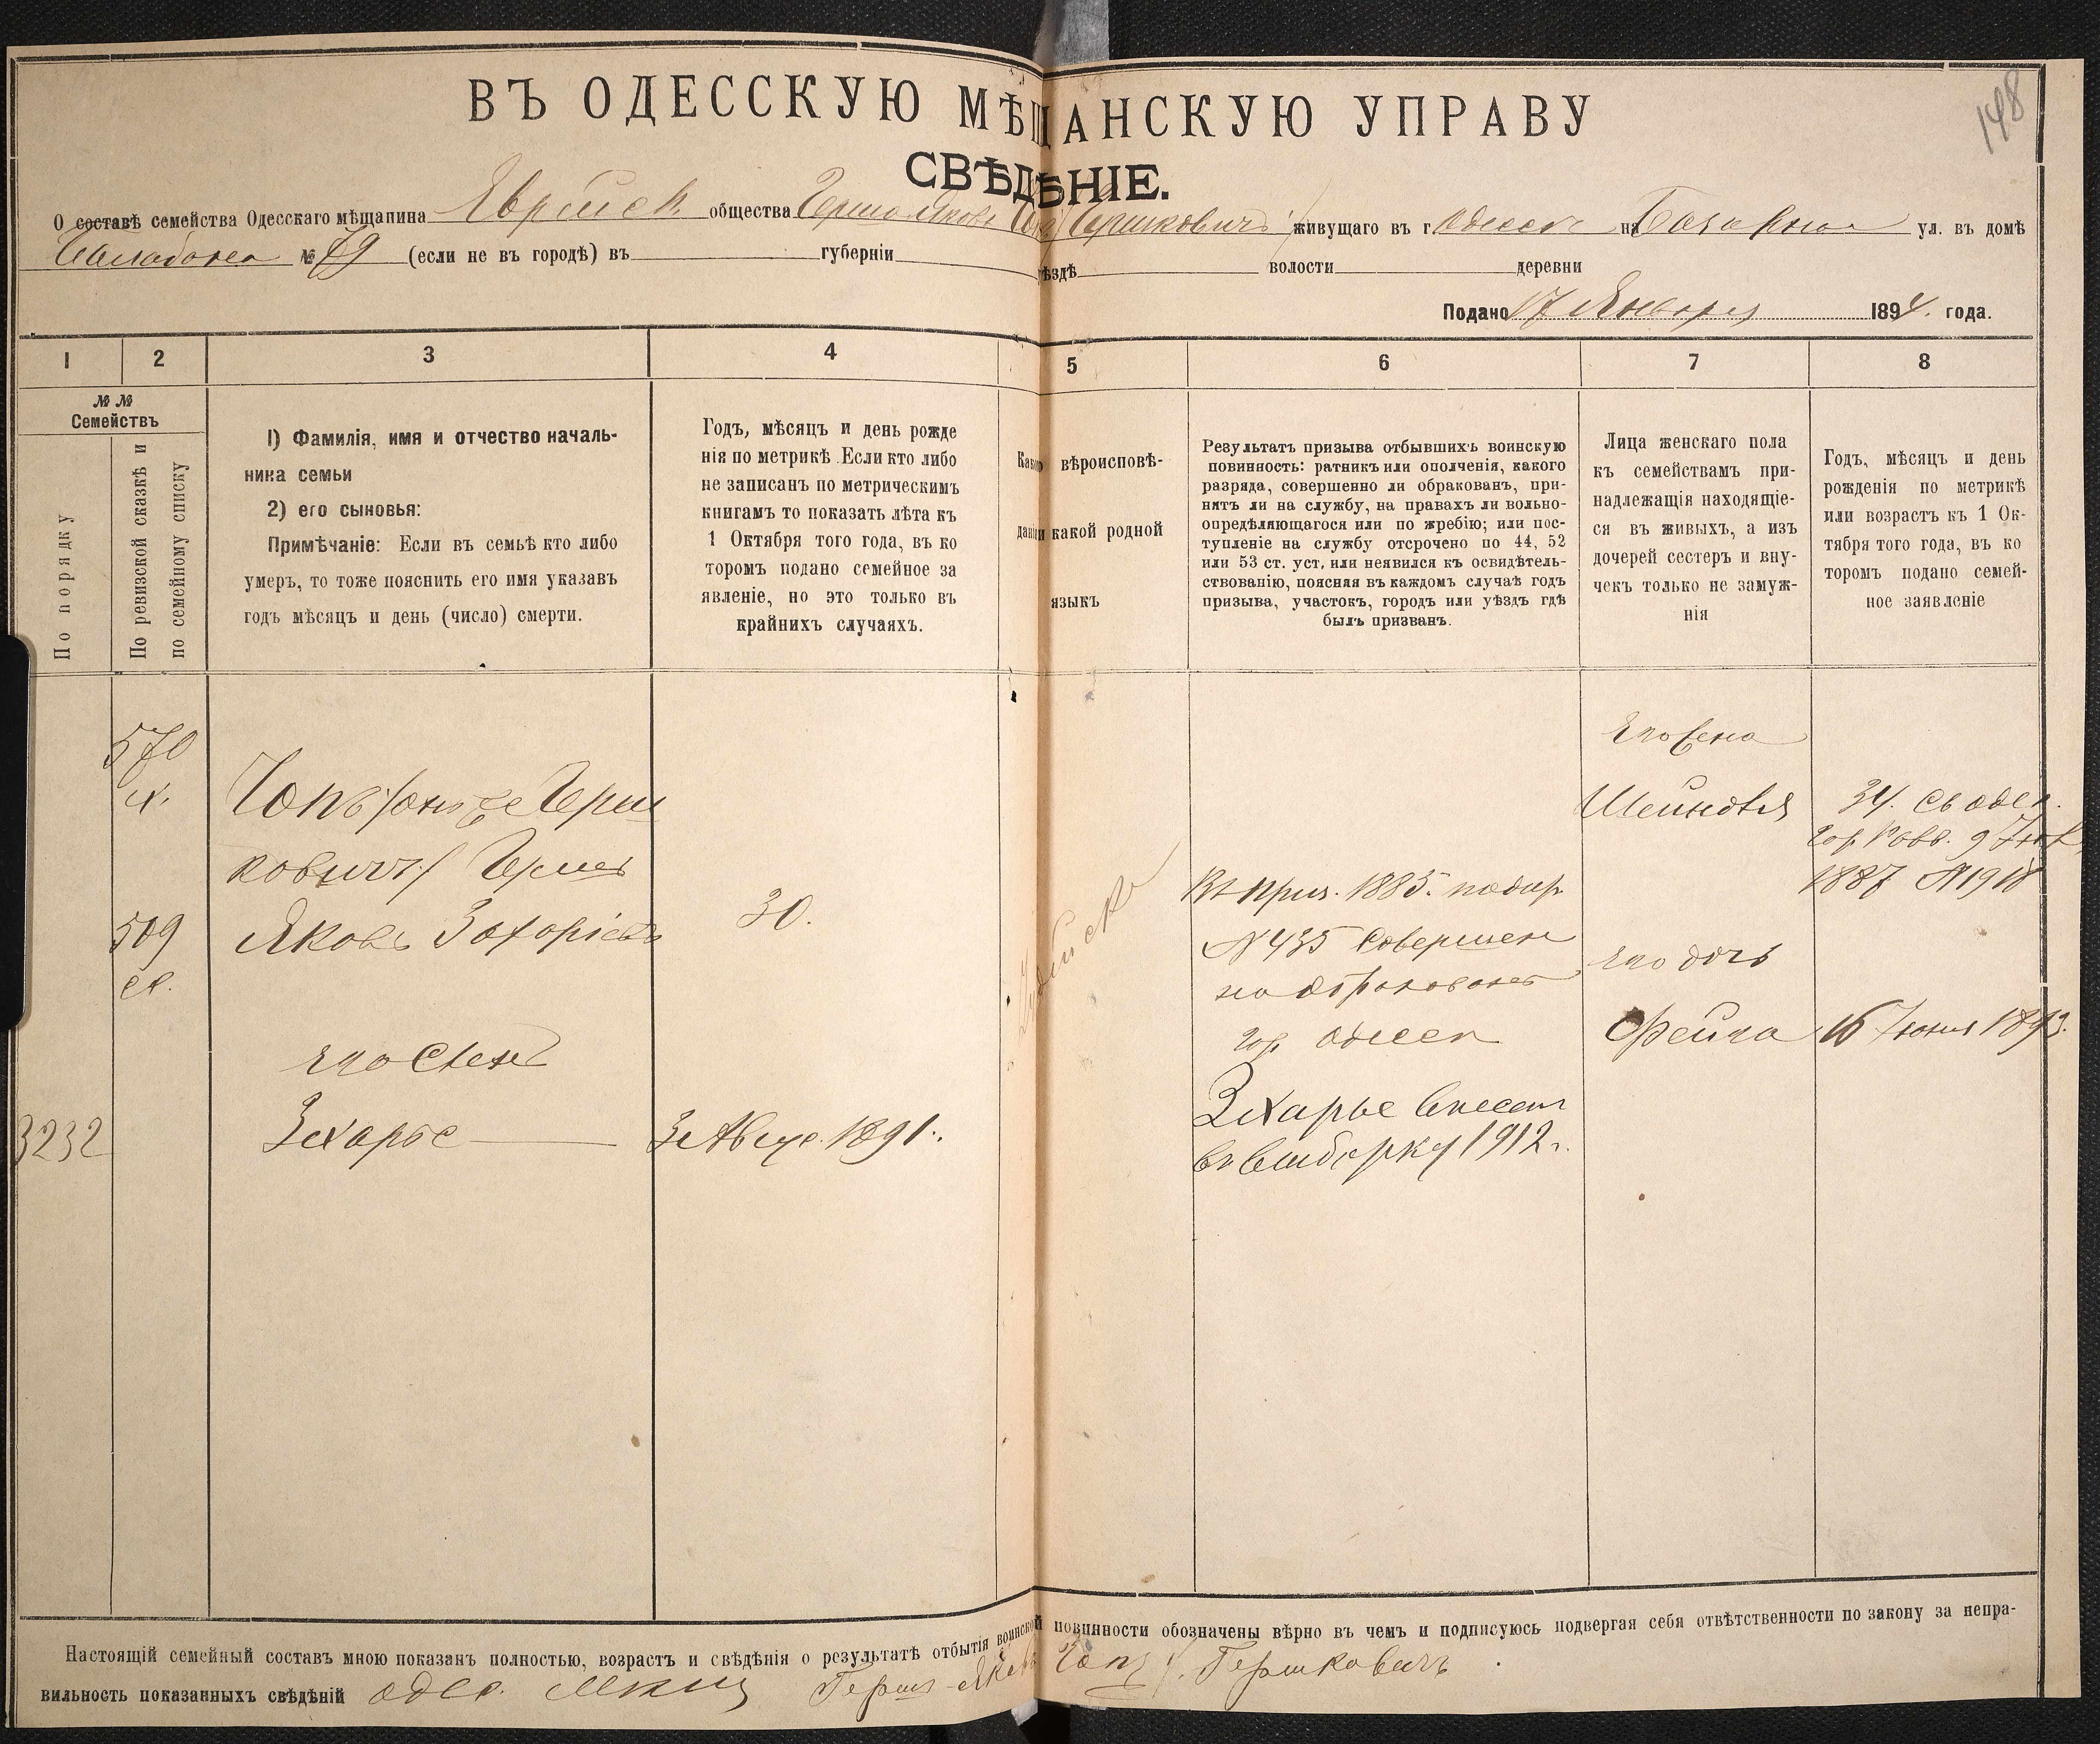 148
ВЪ ОДЕССКУЮ МѢЩАНСКУЮ УПРАВУ
СВѢДѢНІЕ.
О составѣ семейства Одесскаго мѣщанина Еврейск. общества Герша Якова Гершковичъ живущаго въ г Одессе на Базарной ул. въ домѣ
№ 79 (если не въ городѣ) въ губерніи уѣздѣ волости деревни
Подано 17 Января 1894. года.
1 2 3 4 5 6 7 8
№ №
Семействъ
По порядку
По ревизской сказкѣ и
по семейному списку
1) Фамилія, имя и отчество началь-
ника семьи
2) его сыновья:
Примѣчаніе: Если въ семьѣ кто либо
умеръ, то тоже пояснить его имя указавъ
годъ мѣсяцъ и день (число) смерти.
Годъ, мѣсяцъ и день рожде
нія по метрикѣ. Если кто либо
не записанъ по метрическимъ
книгамъ то показать лѣта къ
1 Октября того года, въ ко
торомъ подано семейное за
явленіе, но это только въ
крайнихъ случаяхъ.
Какого вѣроисповѣ-
данія какой родной
языкъ
Результатъ призыва отбывшихъ воинскую
повинность: ратникъ или ополченія, какого
разряда, совершенно ли обракованъ, при-
нятъ ли на службу, на правахъ ли вольно-
опредѣляющагося или по жребію; или пос-
тупленіе на службу отсрочено по 44, 52
или 53 ст. уст. или неявился къ освидѣтель-
ствованію, поясняя въ каждомъ случаѣ годъ
призыва, участокъ, городъ или уѣздъ гдѣ
былъ призванъ.
Лица женскаго пола
къ семействамъ при-
надлежащія находящіе-
ся въ живыхъ, а изъ
дочерей сестеръ и вну-
чекъ только не замуж-
нія
Годъ, мѣсяцъ и день
рожденія по метрикѣ
или возрастъ къ 1 Ок-
тября того года, въ ко
торомъ подано семей-
ное заявленіе
570
Герш
ковичъ) Герш
509
Яковъ Захаріевъ
30.
Иудейск
Въ приз. 1885. по жер.
№ 435 Совершен
но обракованъ
гор. Одесса
его жена
Шейндля
34.
1887 № 1918
его дочь
Фейга
16 Іюня 1893.
его Сынъ
3232
Зхарье
3 Авгус. 1891.
Зхарье внесенъ
въ выборку 1912 г.
Настоящій семейный составъ мною показанъ полностью, возрастъ и свѣдѣнія о результатѣ отбытія воинской повинности обозначены вѣрно въ чемъ и подписуюсь подвергая себя отвѣтственности по закону за непра-
вильность показанныхъ свѣдѣній Одес. Мѣщ Гершъ-Яковъ Гершковичъ